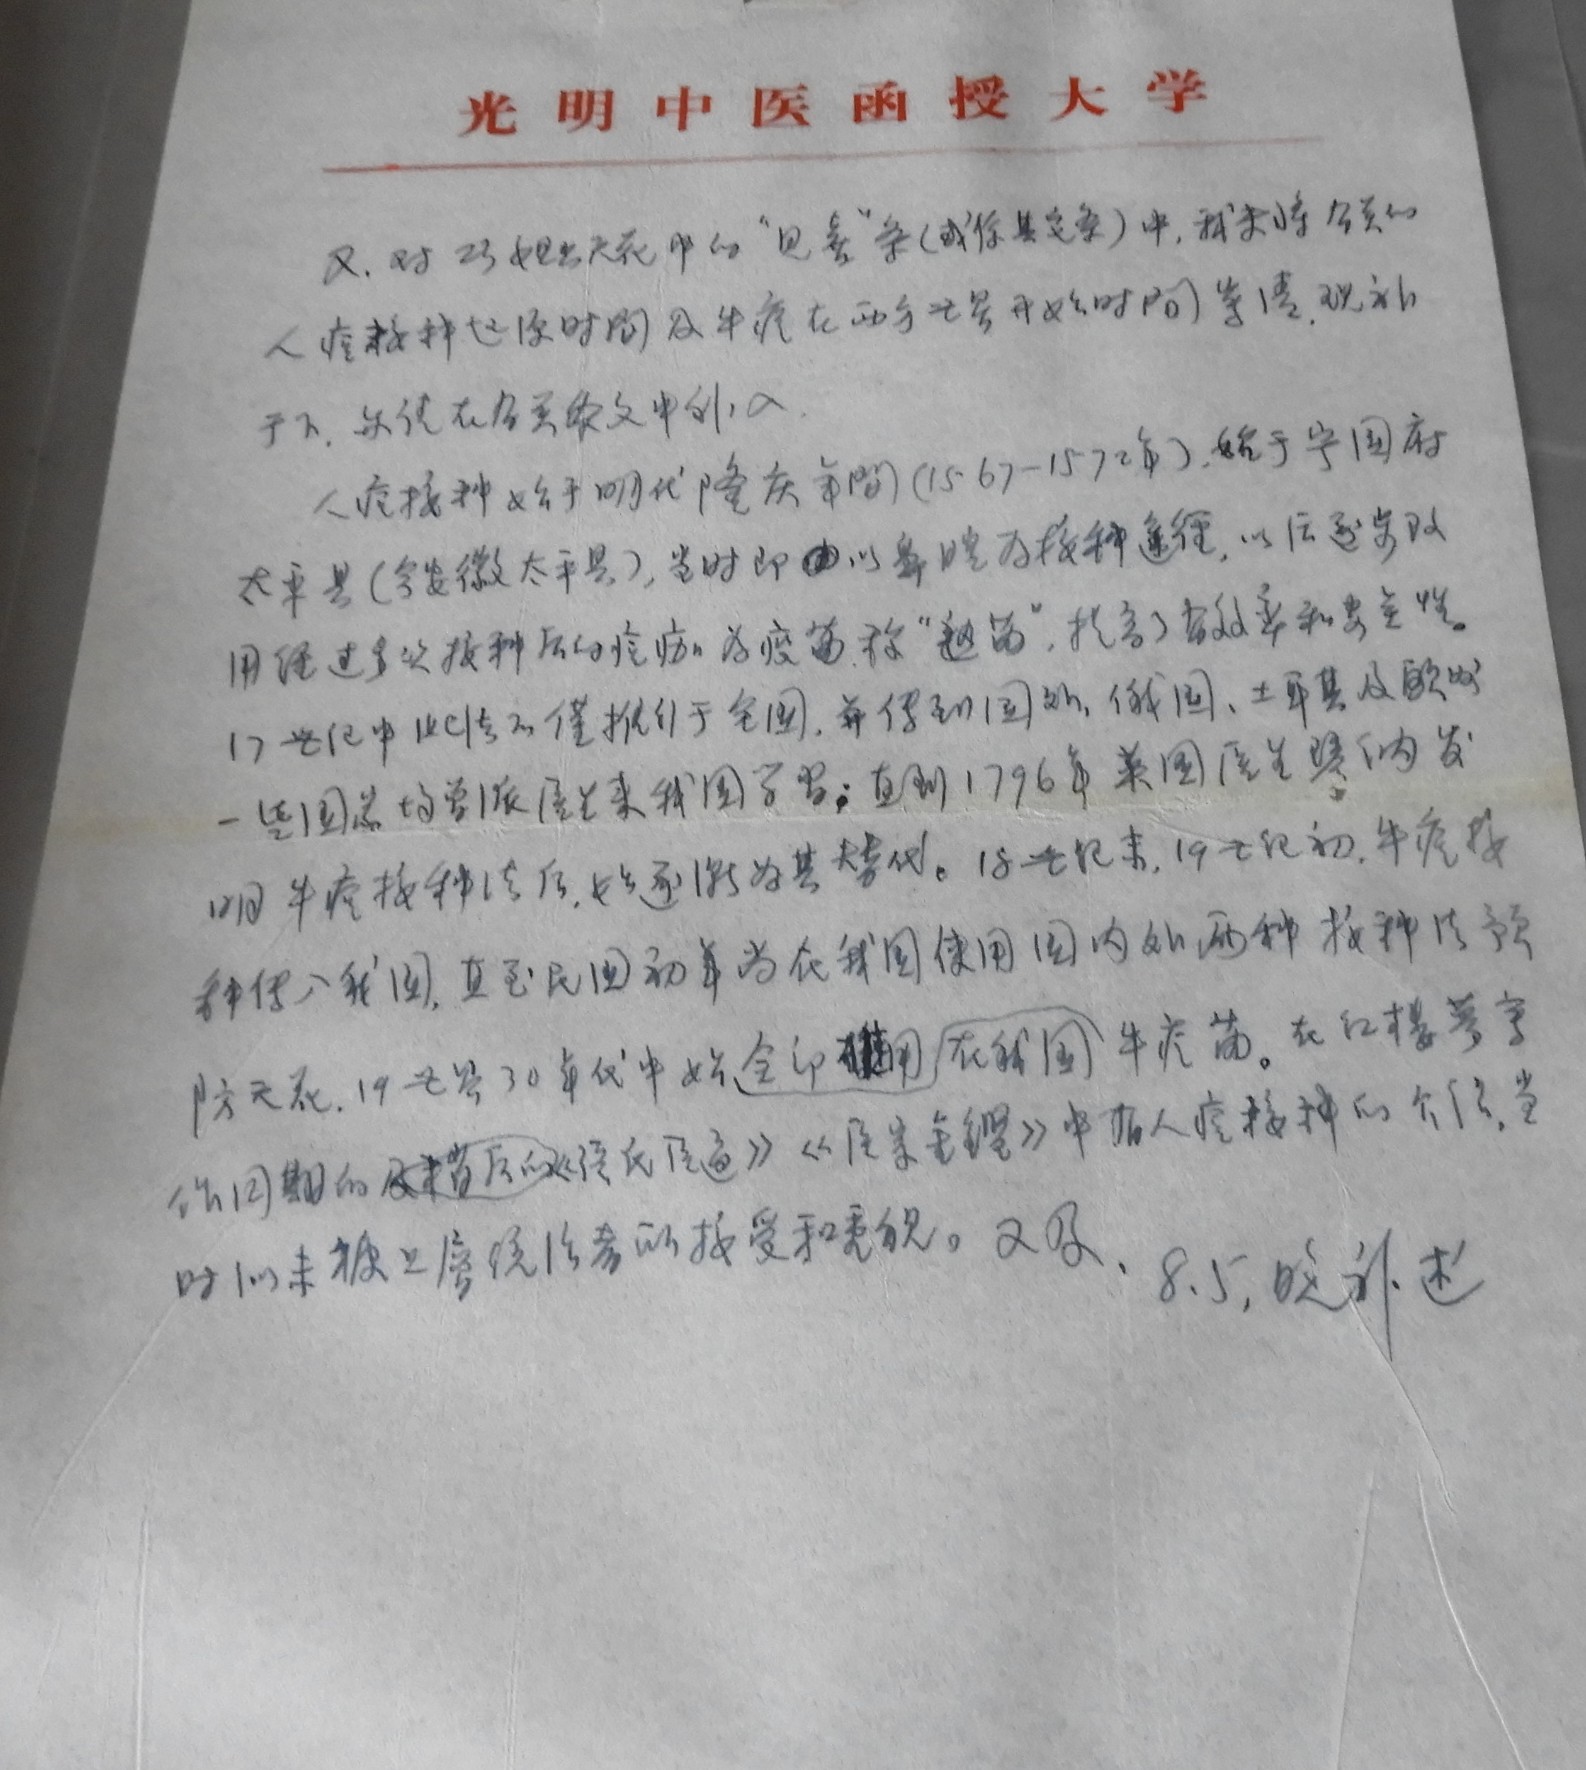 光明中医函授大学
又，对巧姐出天花中的“见喜”条（或像其它条）中，我未将有关的
人痘接种起源时间及牛痘在西方世界开始时间写清，现补
于下，如能在有关条文中列入。
人痘接种始于明代隆庆年間（1567—1572年），始于宁国府
太平县（今安徽太平县），当时即以鼻腔为接种途径，以后逐步改
用经过多次接种后的痘痂为疫苗，称“熟苗”，提高了有效率和安全性。
17世纪中此法不僅推行于全国，并传到国外，俄国、土耳其及欧州
一些国家均曾派医生来我国学习；直到1796年英国医生琴纳发
明牛痘接种法后，始逐漸为其替代。18世纪末，19世纪初，牛痘接
种传入我国，直至民国初年尚在我国使用国内外两种接种法预
防天花，19世纪30年代中始全印用在我国牛痘苗。在红楼梦写
作同期的及稍后的《张氏医通》《医宗金鑑》中有人痘接种的介绍，当
时似未被上层统治者所接受和重视。又及，8.5，晚补述